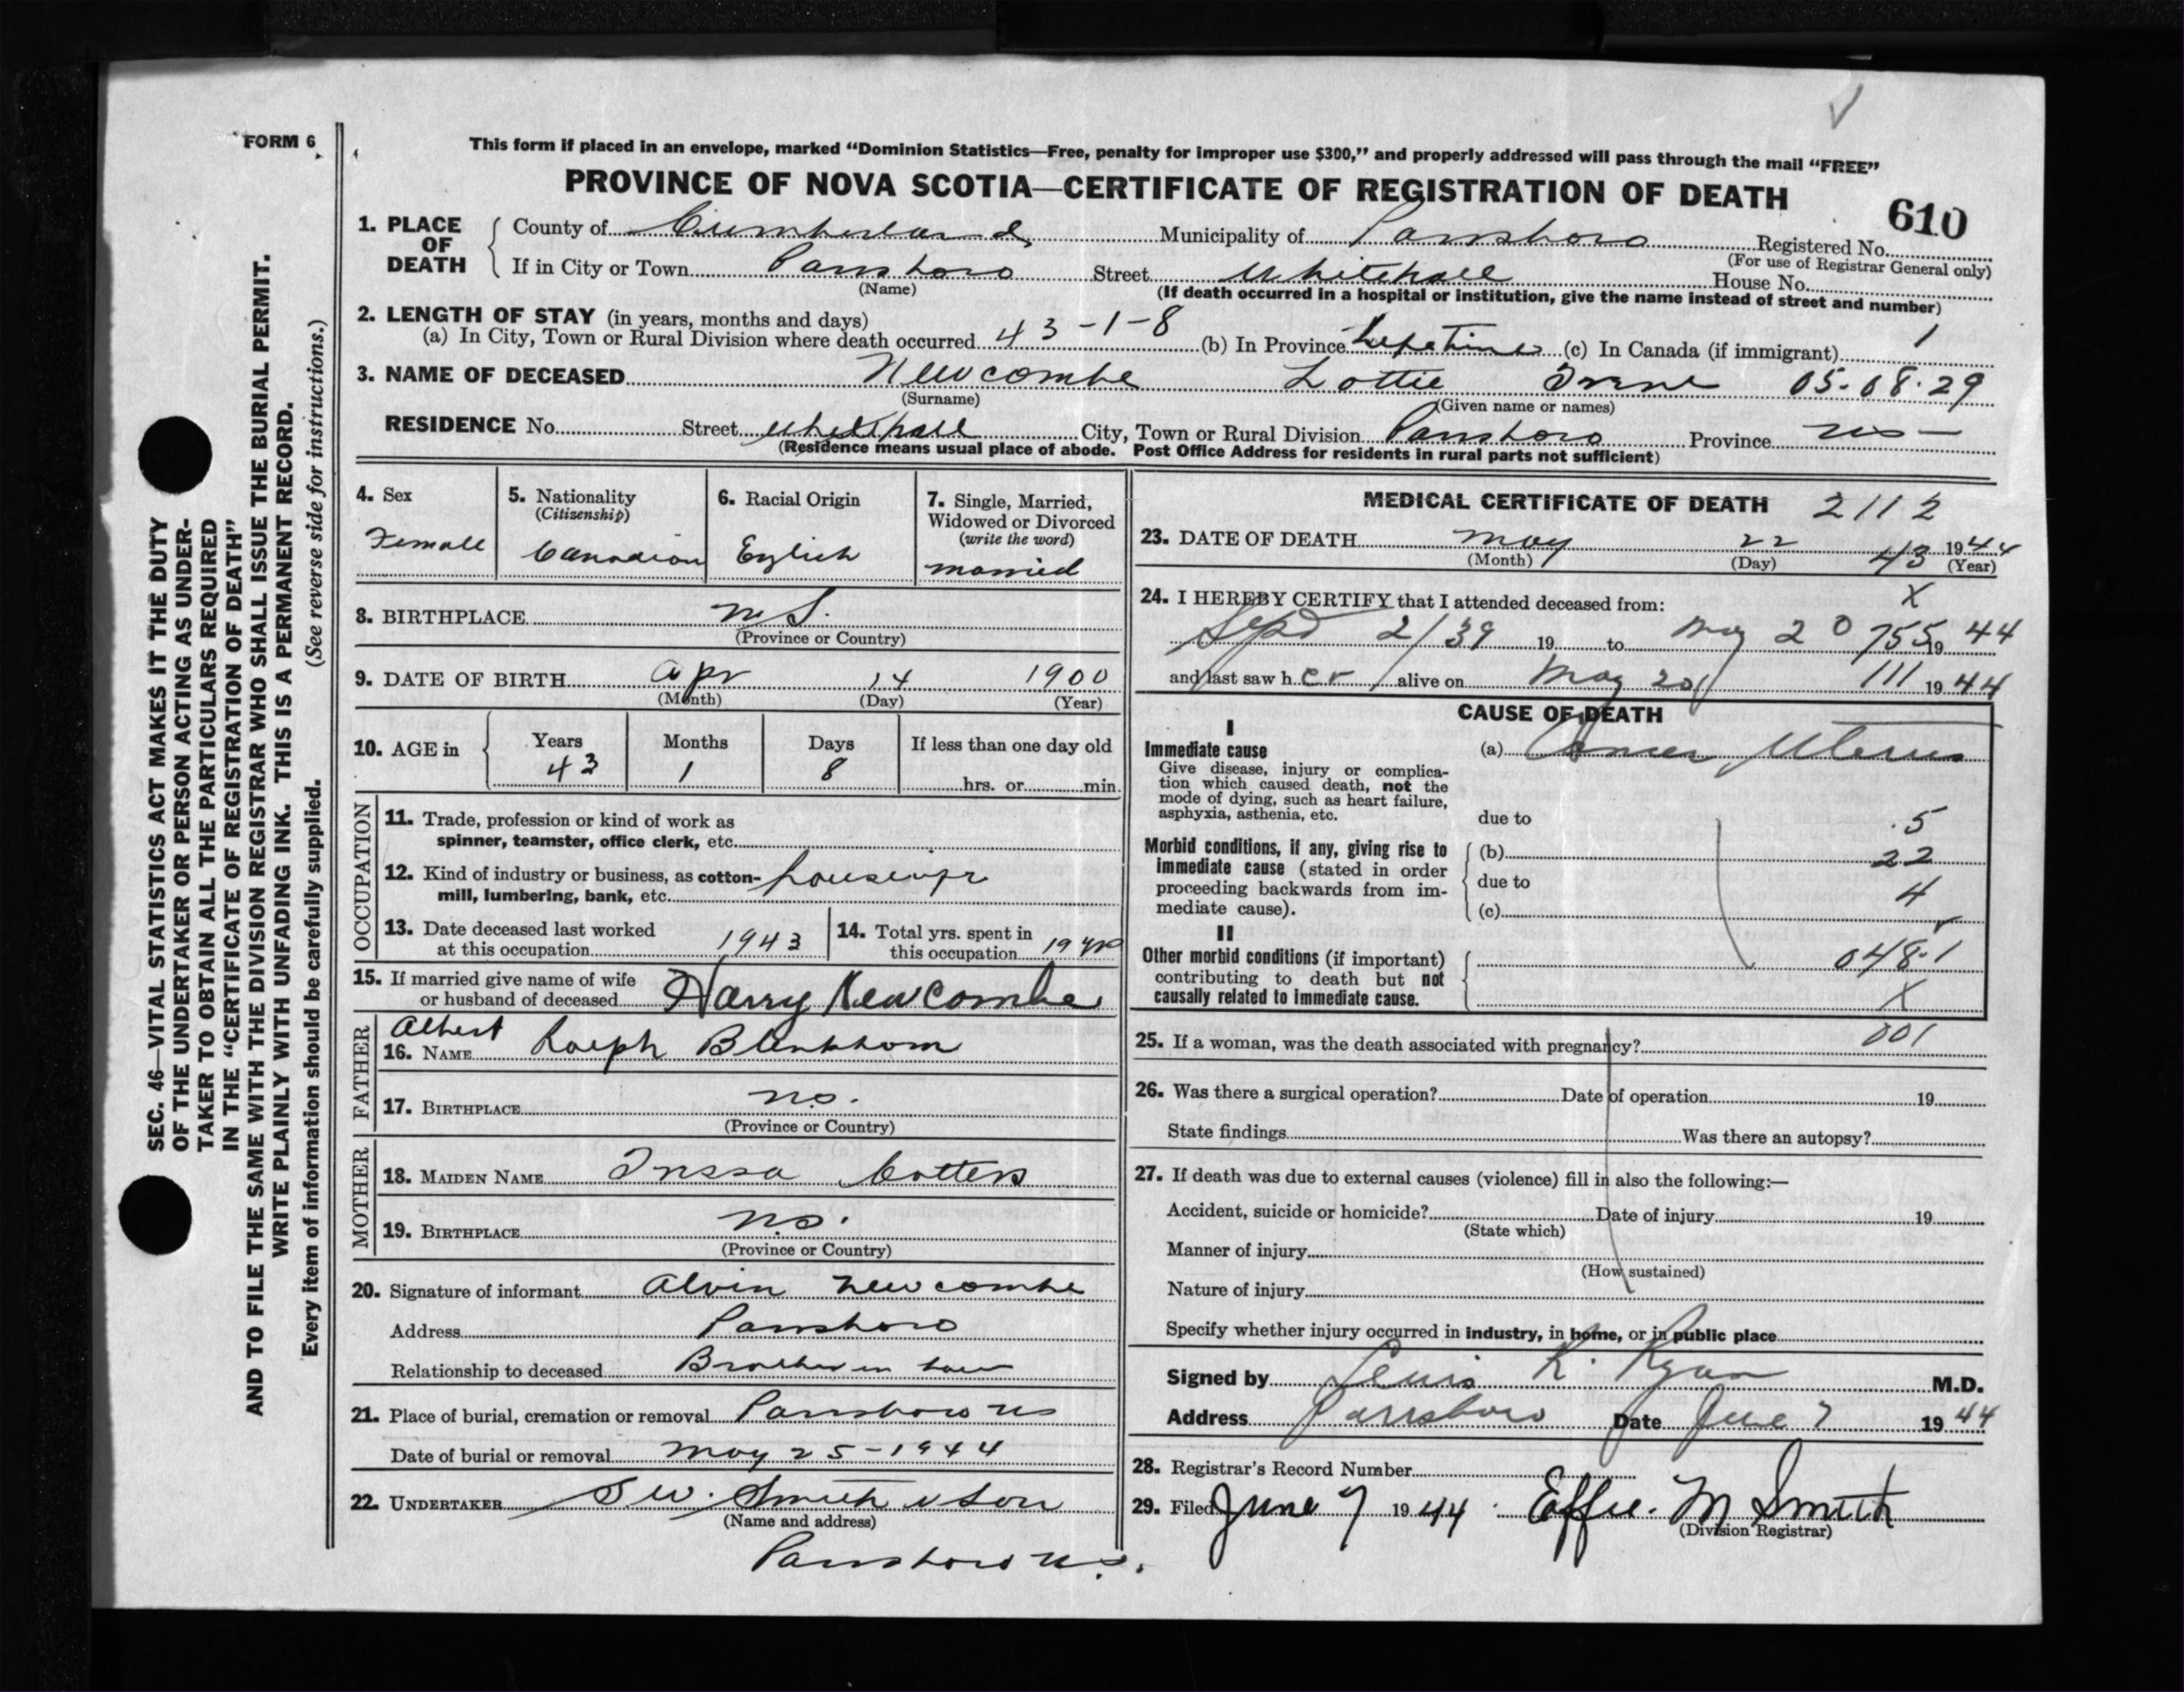 FORM 6
This form if placed in an envelope, marked "Dominion Statistics—Free, penalty for improper use $300," and properly addressed will pass through the mail "FREE"
PROVINCE OF NOVA SCOTIA—CERTIFICATE OF REGISTRATION OF DEATH
610
1. PLACE OF DEATH
County of Cumberland Municipality of Parrsboro Registered No.
(For use of Registrar General only)
If in City or Town Parrsboro Street Whitehall House No.
(Name) (If death occurred in a hospital or institution, give the name instead of street and number)
2. LENGTH OF STAY (in years, months and days)
(a) In City, Town or Rural Division where death occurred 43-1-8 (b) In Province Lifetime (c) In Canada (if immigrant) 1
3. NAME OF DECEASED Newcombe Lottie Irene 05-08-29
(Surname) (Given name or names)
RESIDENCE No. Street Whitehall City, Town or Rural Division Parrsboro Province NS
(Residence means usual place of abode. Post Office Address for residents in rural parts not sufficient)
4. Sex
Female
5. Nationality
(Citizenship)
Canadian
6. Racial Origin
English
7. Single, Married, Widowed or Divorced
(write the word)
married
8. BIRTHPLACE N S.
(Province or Country)
9. DATE OF BIRTH Apr 14 1900
(Month) (Day) (Year)
10. AGE in Years Months Days If less than one day old
43 1 8 hrs. or min.
OCCUPATION
11. Trade, profession or kind of work as
spinner, teamster, office clerk, etc.
12. Kind of industry or business, as cotton-
mill, lumbering, bank, etc. housewife
13. Date deceased last worked
at this occupation 1943
14. Total yrs. spent in
this occupation 19 yrs
15. If married give name of wife
or husband of deceased Harry Newcombe
FATHER
Albert
16. NAME Ralph Blenkhorn
17. BIRTHPLACE N.S.
(Province or Country)
MOTHER
18. MAIDEN NAME Inssa
19. BIRTHPLACE N.S.
(Province or Country)
20. Signature of informant Alvin Newcombe
Address Parrsboro
Relationship to deceased Brother in law
21. Place of burial, cremation or removal Parrsboro NS
Date of burial or removal May 25-1944
22. UNDERTAKER S.W. Smith & Son
(Name and address)
Parrsboro N.S.
MEDICAL CERTIFICATE OF DEATH 2112
23. DATE OF DEATH May 22 1944
(Month) (Day) 43 (Year)
X
24. I HEREBY CERTIFY that I attended deceased from:
Sept 2/39 19 to May 20 755 19 44
and last saw h er alive on May 20 111 19 44
CAUSE OF DEATH
I
Immediate cause
Give disease, injury or complica-
tion which caused death, not the
mode of dying, such as heart failure,
asphyxia, asthenia, etc.
(a) Cancer Uterus
due to 5
Morbid conditions, if any, giving rise to
immediate cause (stated in order
proceeding backwards from im-
mediate cause).
(b) 22
due to 4
(c)
II
Other morbid conditions (if important)
contributing to death but not
causally related to immediate cause.
048.1
X
25. If a woman, was the death associated with pregnancy? 001
26. Was there a surgical operation? Date of operation 19
State findings Was there an autopsy?
27. If death was due to external causes (violence) fill in also the following:—
Accident, suicide or homicide? Date of injury 19
(State which)
Manner of injury
(How sustained)
Nature of injury
Specify whether injury occurred in industry, in home, or in public place
Signed by Lewis K. Ryan M.D.
Address Parrsboro Date June 7 1944
28. Registrar's Record Number
29. Filed June 7 1944 Effie. M Smith
(Division Registrar)
SEC. 46—VITAL STATISTICS ACT MAKES IT THE DUTY
OF THE UNDERTAKER OR PERSON ACTING AS UNDER-
TAKER TO OBTAIN ALL THE PARTICULARS REQUIRED
IN THE "CERTIFICATE OF REGISTRATION OF DEATH"
AND TO FILE THE SAME WITH THE DIVISION REGISTRAR WHO SHALL ISSUE THE BURIAL PERMIT.
WRITE PLAINLY WITH UNFADING INK. THIS IS A PERMANENT RECORD.
Every item of information should be carefully supplied. (See reverse side for instructions.)